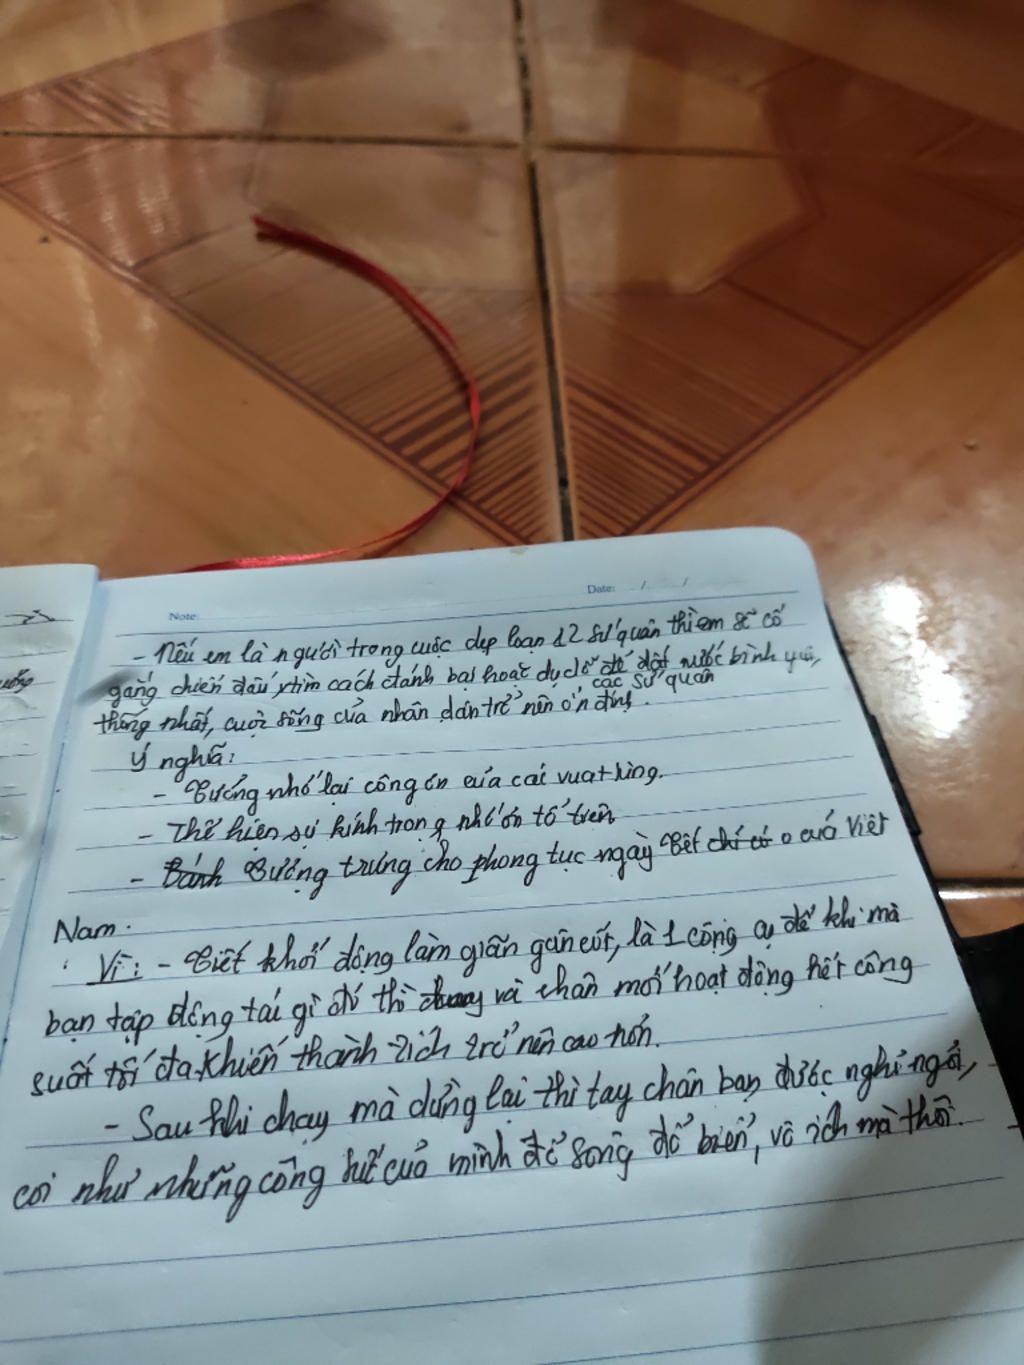 Note:
Date: / /
- Nếu em là người trong cuộc dẹp loạn 12 sứ quân thì em sẽ cố
gắng chiến đấu, tìm cách đánh bại hoặc dụ dỗ để đất nước bình yên,
các sứ quân
thống nhất, cuộc sống của nhân dân trở nên ổn định.
Ý nghĩa:
- Tưởng nhớ lại công ơn của các vua Hùng.
- Thể hiện sự kính trọng nhớ ơn tổ tiên
- Bánh Tượng trưng cho phong tục ngày Tết chỉ có ở của Việt
Nam.
Vì: - Tiết khởi động làm giãn gân cốt, là 1 công cụ để khi mà
bạn tập động tác gì đó thì và chân mới hoạt động hết công
suất tối đa khiến thành tích trở nên cao hơn.
- Sau khi chạy mà dừng lại thì tay chân bạn được nghỉ ngơi,
coi như những công sức của mình đổ sông đổ biển, vô ích mà thôi.